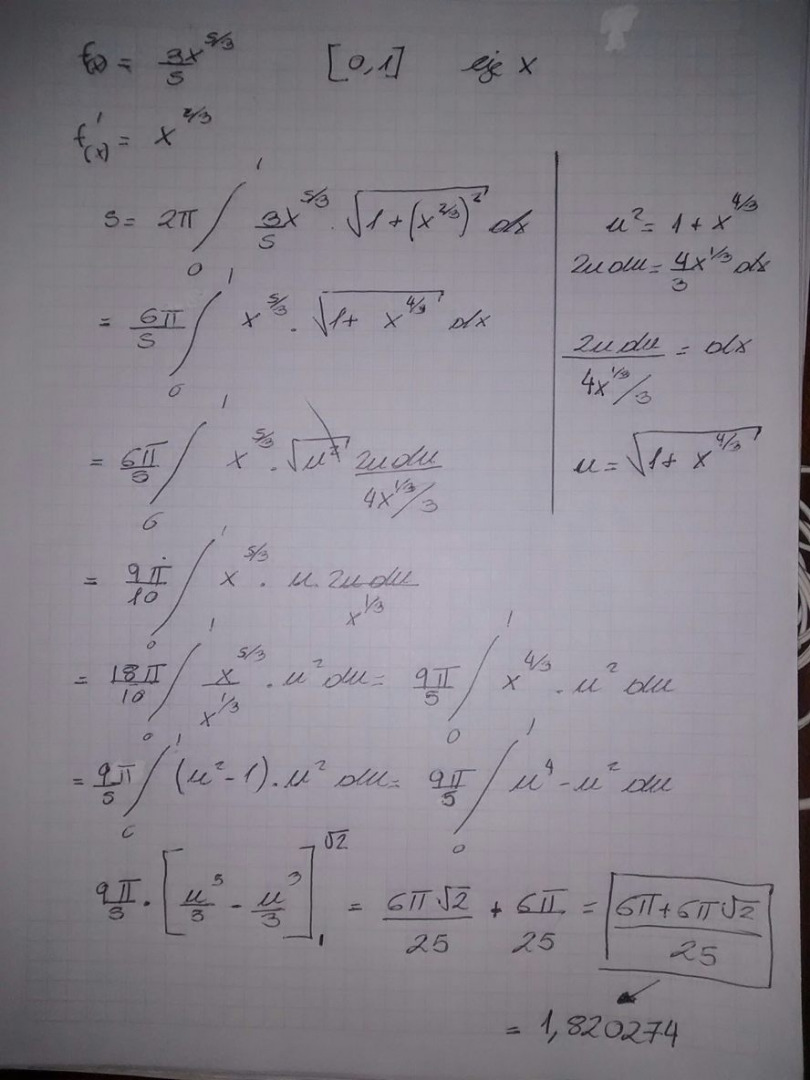 f(x) = 3x^5/3 / 5 [0,1] eje x
f'(x) = x^2/3
S = 2π ∫₀¹ 3x^5/3 / 5 · √(1+(x^2/3)²) dx
= 6π/5 ∫₀¹ x^5/3 · √(1+ x^4/3) dx
= 6π/5 ∫₀¹ x^5/3 · √u² 2u du / (4x^1/3 / 3)
= 9π/10 ∫₀¹ x^5/3 · u · 2u du / x^1/3
= 18π/10 ∫₀¹ x^5/3 / x^1/3 · u² du = 9π/5 ∫₀¹ x^4/3 · u² du
= 9π/5 ∫₀¹ (u²-1) · u² du = 9π/5 ∫₀¹ u⁴ - u² du
9π/5 · [u⁵/5 - u³/3]₁^√2 = 6π√2/25 + 6π/25 = (6π+6π√2)/25
= 1,820274
u² = 1 + x^4/3
2u du = 4/3 x^1/3 dx
2u du / (4x^1/3 / 3) = dx
u = √(1+ x^4/3)